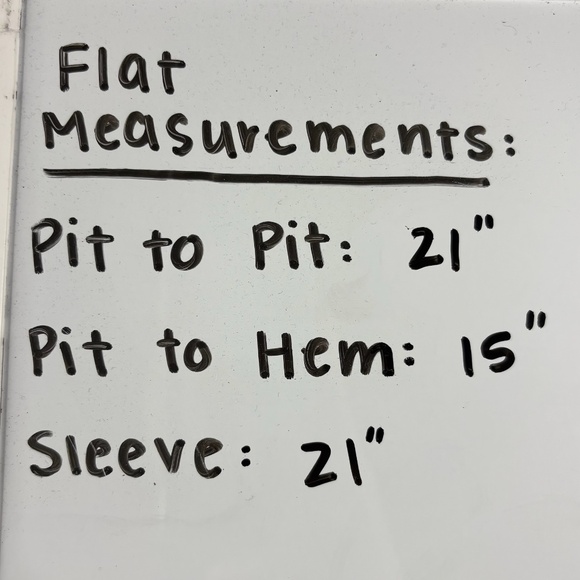 Flat
Measurements:
Pit to Pit: 21"
Pit to Hem: 15"
Sleeve: 21"